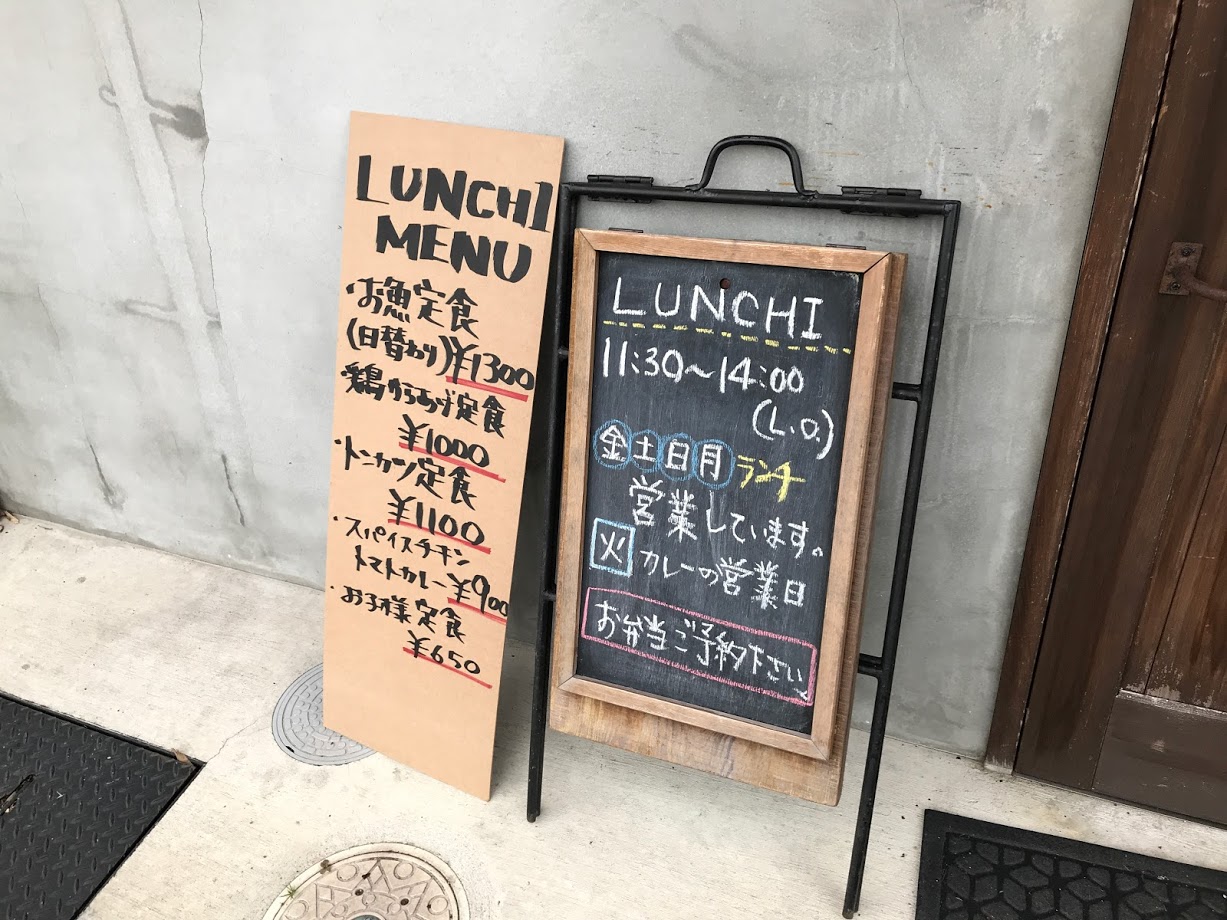 LUNCHI
MENU
・お魚定食
(日替わり)¥1300
・鶏からあげ定食
¥1000
・トンカツ定食
¥1100
・スパイスチキン
トマトカレー¥900
・お子様定食
¥650
LUNCHI
11:30〜14:00
(L.O.)
金土日月ランチ
営業しています。
火カレーの営業日
お弁当ご予約下さい